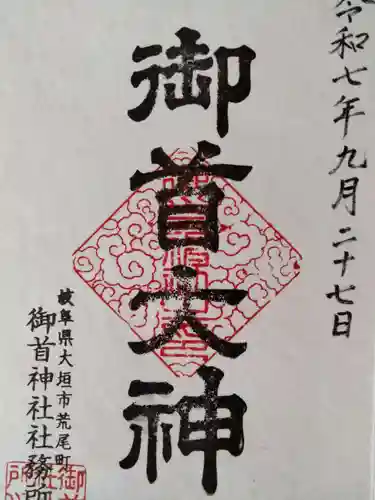 令和七年九月二十七日
御首大神
岐阜県大垣市荒尾町
御首神社社務所